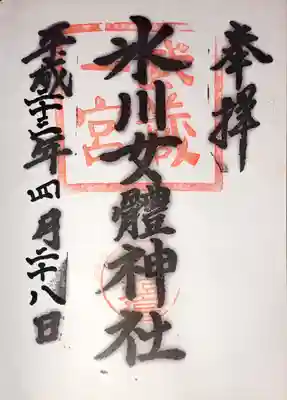 奉拝
武蔵一宮
氷川女體神社
平成二十三年四月二十八日